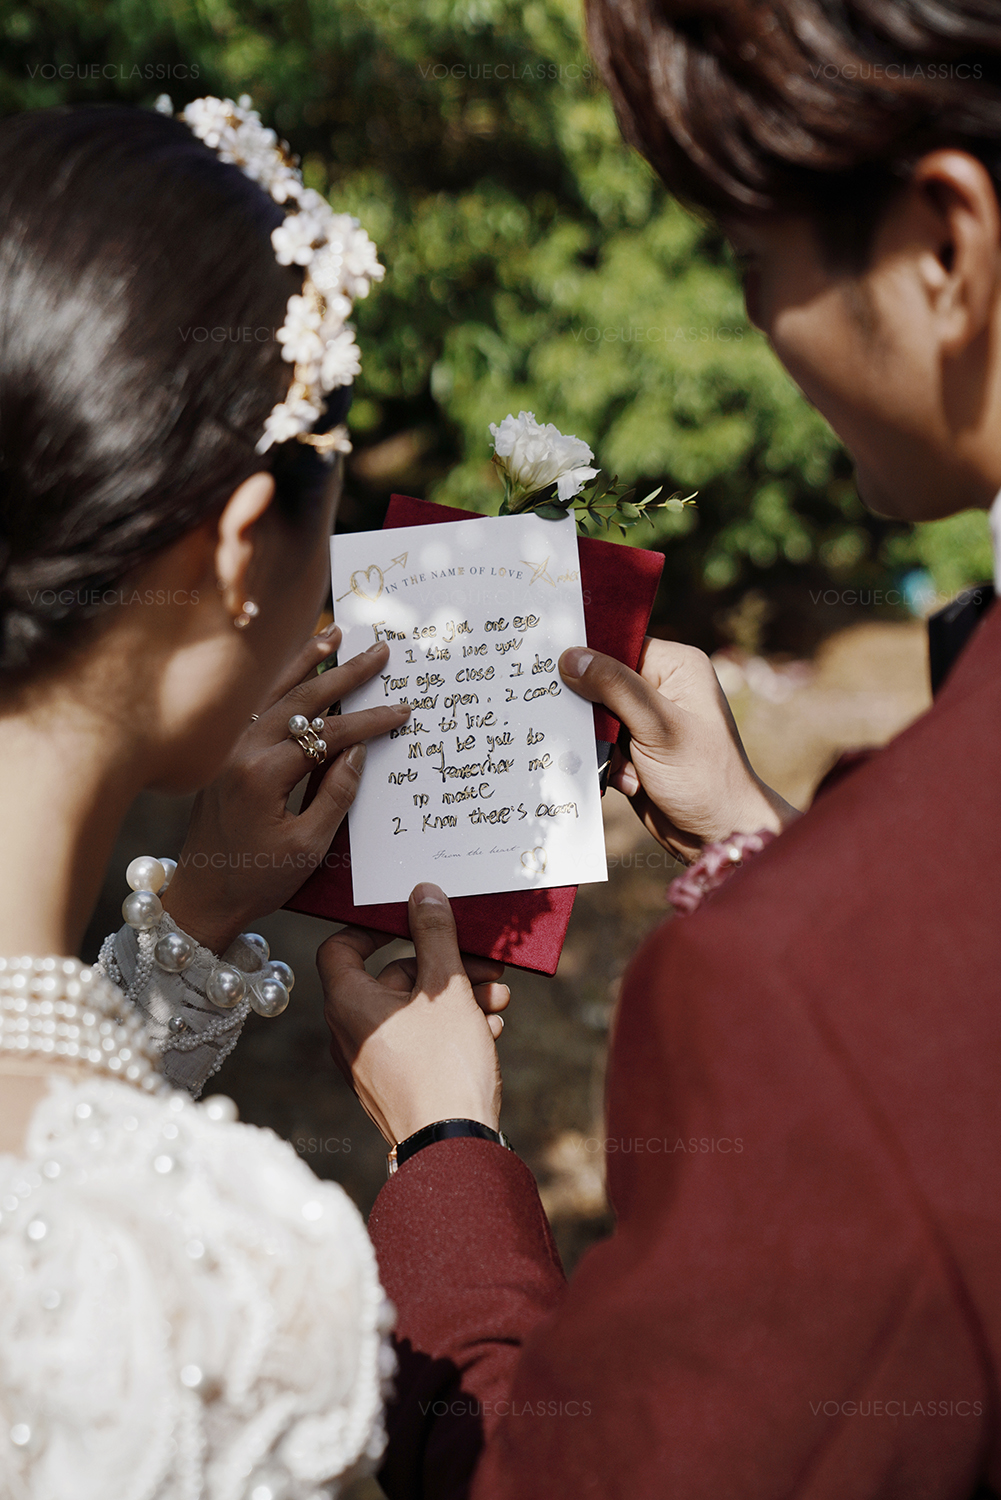 VOGUECLASSICS VOGUECLASSICS VOGUECLASSICS
VOGUECLASSICS VOGUECLASSICS
IN THE NAME OF LOVE
VOGUECLASSICS VOGUECLASSICS
From see you one eye
I still love you
Your eyes close I die
open. I come
Back to live.
May be you do
not remember me
no matte
I Know there's
From the heart
VOGUECLASSICS VOGUECLASSICS
VOGUECLASSICS VOGUECLASSICS
VOGUECLASSICS VOGUECLASSICS